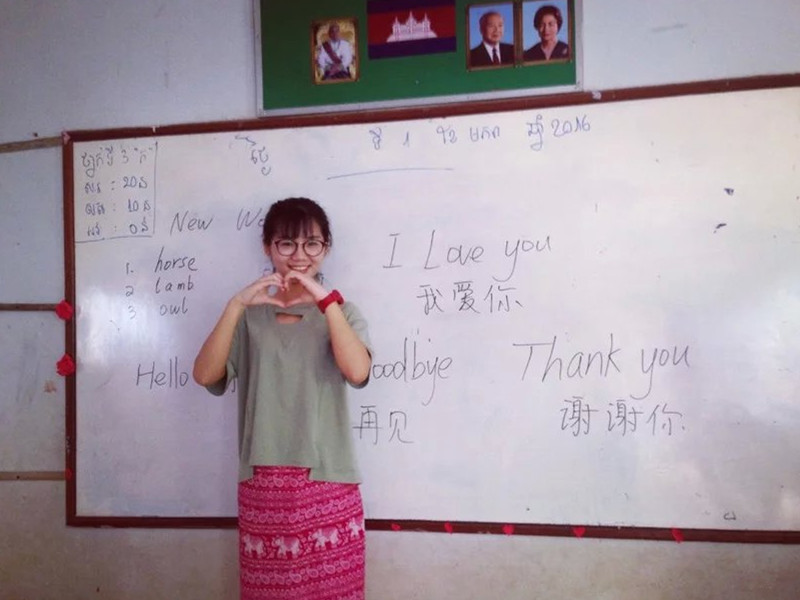 ថ្ងៃ ទី 1 ខែ មករា ឆ្នាំ 2016
ថ្នាក់ទី 3 "ក"
សរុប : 20 ន
វត្តមាន : 20 ន
New
1. horse
2 lamb
3 owl
I Love you
我爱你
Hello
oodbye
再见
Thank you
谢谢你